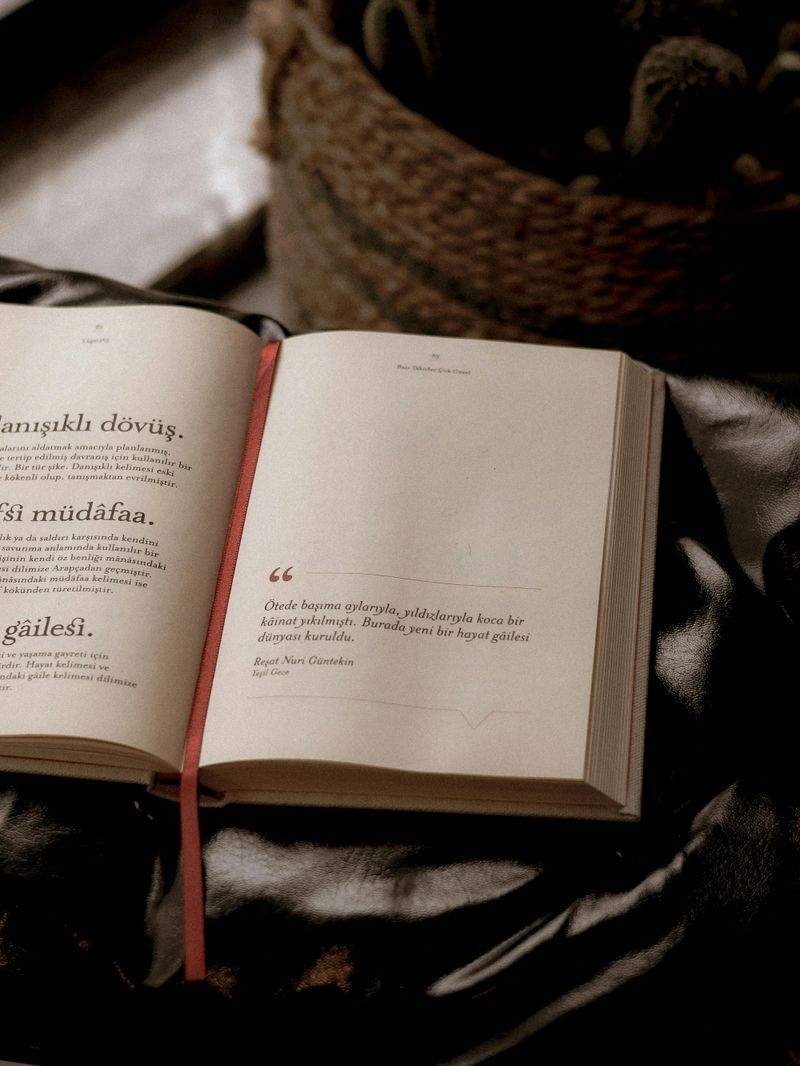 lanışıklı dövüş.
alarını aldatmak amacıyla planlanmış,
e tertip edilmiş davranış için kullanılır bir
lir. Bir tür şike. Danışıklı kelimesi eski
kökenli olup, tanışmaktan evrilmiştir.
fsî müdâfaa.
lık ya da saldırı karşısında kendini
savunma anlamında kullanılır bir
işinin kendi öz benliği mânâsındaki
esi dilimize Arapçadan geçmiştir.
ânâsındaki müdâfaa kelimesi ise
f kökünden türetilmiştir.
gâilesi.
i ve yaşama gayreti için
irdir. Hayat kelimesi ve
ındaki gâile kelimesi dilimize
tir.
“
Ötede başıma aylarıyla, yıldızlarıyla koca bir
kâinat yıkılmıştı. Burada yeni bir hayat gâilesi
dünyası kuruldu.
Reşat Nuri Güntekin
Yeşil Gece